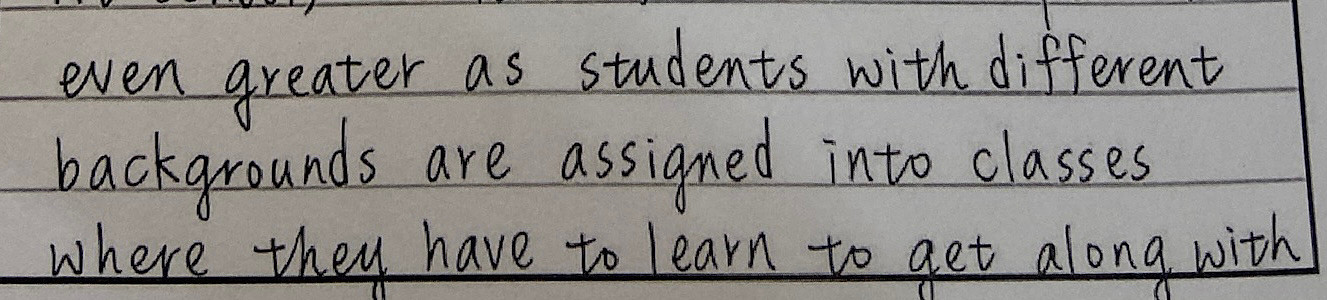 even greater as students with different
backgrounds are assigned into classes
where they have to learn to get along with